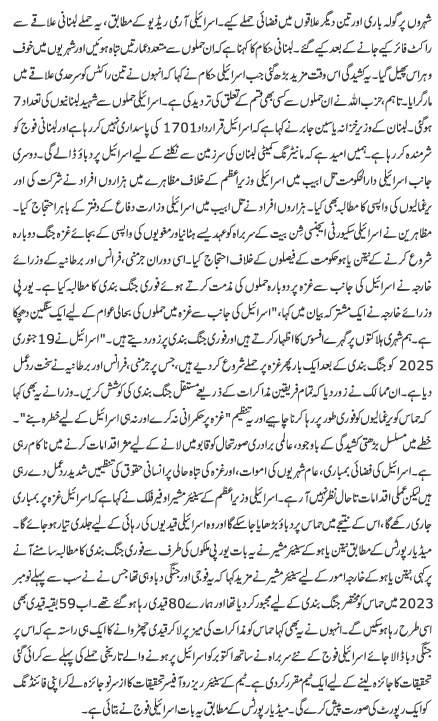 شہروں پر گولہ باری اور تین دیگر علاقوں میں فضائی حملے کیے۔ اسرائیلی آرمی ریڈیو کے مطابق، یہ حملے لبنانی علاقے سے
راکٹ فائر کیے جانے کے بعد کیے گئے۔ لبنانی حکام کا کہنا ہے کہ ان حملوں سے متعدد عمارتیں تباہ ہوئیں اور شہریوں میں خوف
و ہراس پھیل گیا۔ یہ کشیدگی اس وقت مزید بڑھ گئی جب اسرائیلی حکام نے کہا کہ انہوں نے تین راکٹس کو سرحدی علاقے میں
مار گرایا۔ تاہم، حزب اللہ نے ان حملوں سے کسی بھی قسم کے تعلق کی تردید کی ہے۔ اسرائیلی حملوں سے شہید لبنانیوں کی تعداد 7
ہو گئی۔ لبنان کے وزیر خزانہ یاسین جابر نے کہا ہے کہ اسرائیل قرارداد 1701 کی پاسداری نہیں کر رہا ہے اور لبنانی فوج کو
شرمندہ کر رہا ہے۔ ہمیں امید ہے کہ مانیٹرنگ کمیٹی لبنان کی سرزمین سے نکلنے کے لیے اسرائیل پر دباؤ ڈالے گی۔ دوسری
جانب اسرائیلی دارالحکومت تل ابیب میں اسرائیلی وزیر اعظم کے خلاف مظاہرے میں ہزاروں افراد نے شرکت کی اور
یرغمالیوں کی واپسی کا مطالبہ بھی کیا۔ ہزاروں افراد نے تل ابیب میں اسرائیلی وزارت دفاع کے دفتر کے باہر احتجاج کیا۔
مظاہرین نے اسرائیلی سکیورٹی ایجنسی شن بیت کے سربراہ کو عہدیسے ہٹانیاور مغویوں کی واپسی کے بجائے غزہ جنگ دوبارہ
شروع کرنے کے نیتن یاہو حکومت کے فیصلوں کے خلاف احتجاج کیا۔ اسی دوران جرمنی، فرانس اور برطانیہ کے وزرائے
خارجہ نے اسرائیل کی جانب سے غزہ پر دوبارہ حملوں کی مذمت کرتے ہوئے فوری جنگ بندی کا مطالبہ کیا ہے۔ یورپی
وزرائے خارجہ نے ایک مشترکہ بیان میں کہا، "اسرائیل کی جانب سے غزہ میں حملوں کی بحالی عوام کے لیے ایک سنگین دھچکا
ہے۔ ہم شہری ہلاکتوں پر گہرے افسوس کا اظہار کرتے ہیں اور فوری جنگ بندی پر زور دیتے ہیں۔" اسرائیل نے 19 جنوری
2025 کو جنگ بندی کے بعد ایک بار پھر غزہ پر حملے شروع کر دیے ہیں، جس پر جرمنی، فرانس اور برطانیہ نے سخت رد عمل
دیا ہے۔ ان ممالک نے زور دیا کہ تمام فریقین مذاکرات کے ذریعے مستقل جنگ بندی کی کوشش کریں۔ وزرا نے یہ بھی کہا
کہ حماس کو یرغمالیوں کو فوری طور پر رہا کرنا چاہیے اور یہ تنظیم "غزہ پر حکمرانی نہ کرے اور نہ ہی اسرائیل کے لیے خطرہ بنے"۔
خطے میں مسلسل بڑھتی کشیدگی کے باوجود، عالمی برادری صورتحال کو قابو میں لانے کے لیے مؤثر اقدامات کرنے میں ناکام رہی
ہے۔ اسرائیل کی فضائی بمباری، عام شہریوں کی اموات، اور غزہ کی تباہ حالی پر انسانی حقوق کی تنظیمیں شدید رد عمل دے رہی
ہیں لیکن عملی اقدامات تاحال نظر نہیں آ رہے۔ اسرائیلی وزیر اعظم کے سینئر مشیر اوفیر فلک نے کہا ہے کہ اسرائیل غزہ پر بمباری
جاری رکھے گا، اس کے نتیجے میں حماس پر دباؤ بڑھایا جا سکے گا اور وہ اسرائیلی قیدیوں کی رہائی کے لیے جلدی تیار ہو جائے گا۔
میڈیا رپورٹس کے مطابق نیتن یاہو کے سینئر مشیر نے یہ بات یورپی ملکوں کی طرف سے فوری جنگ بندی کا مطالبہ سامنے آنے
پر کہی نیتن یاہو کے خارجہ امور کے لیے سینئر مشیر نے مزید کہا کہ یہ فوجی اور جنگی دباو ہی تھا جس نے سب سے پہلے نومبر
2023 میں حماس کو مختصر جنگ بندی کے لیے مجبور کر دیا تھا اور ہمارے 80 قیدی رہا ہو گئے تھے۔ اب 59 بقیہ قیدی بھی
اسی طرح رہا ہو سکیں گے۔ انہوں نے یہ بھی کہا حماس کو مذاکرات کی میز پر لا کر قیدی چھڑوانے کا ایک ہی راستہ ہے کہ اس پر
جنگی دباو ڈالا جائے اسرائیلی فوج کے نئے سربراہ نے ساتھ اکتوبر کو اسرائیل پر ہونے والے تاریخی حملے کی پہلے سے کرائی گئی
تحقیقات کا جائزہ لینے کے لیے ایک ٹیم مقرر کر دی ہے۔ ٹیم کے سینئر ریزرو آفیسر تحقیقات کا از سر نو جائزہ لے کر اپنی فائنڈنگ
کو ایک رپورٹ کی صورت پیش کرے گی۔ میڈیا رپورٹس کے مطابق یہ بات اسرائیلی فوج نے بتائی ہے۔